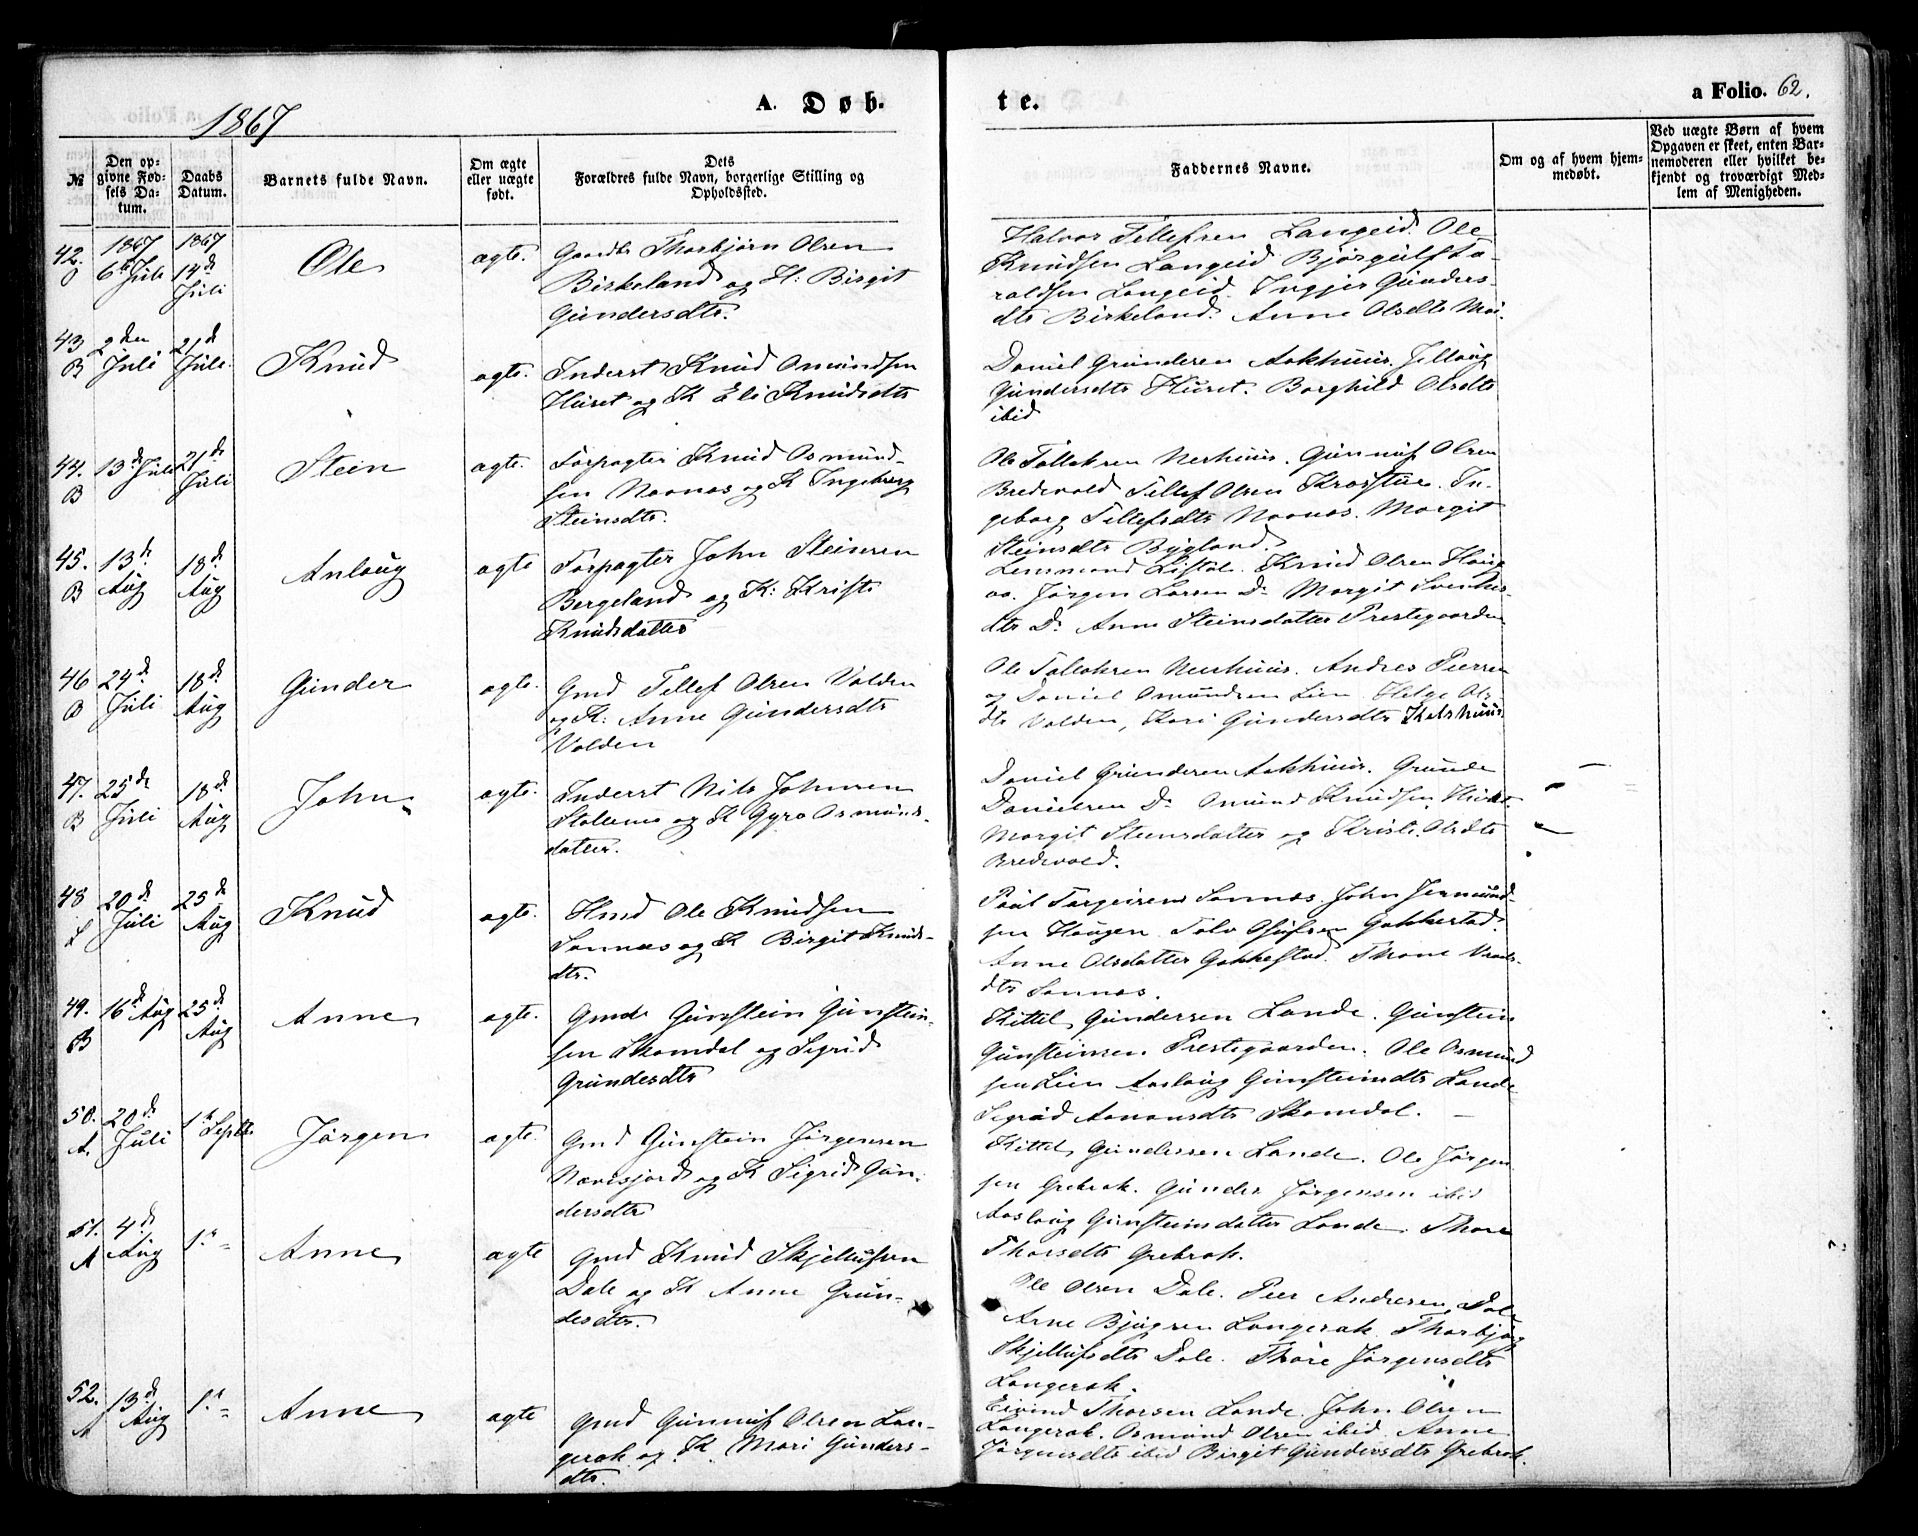 1867
A. Døb
te.
a Folio. 62.
№
Den op-
givne Fød-
sels Da-
tum.
Daabs
Datum.
Barnets fulde Navn.
Om ægte
eller uægte
født.
Dets
Forældres fulde Navn, borgerlige Stilling og
Opholdssted.
Faddernes Navne.
Om og af hvem hjem-
medøbt.
Ved uægte Børn af hvem
Opgaven er skeet, enten Bar-
nemoderen eller hvilket be-
kjendt og troværdigt Med-
lem af Menigheden.
42.
1867
6te Juli
1867
14de
Juli
Ole
ægte.
Thorbjørn Olsen
Birkeland og H: Birgit
Gundersdtr.
Halvor Tellefsen Langeid. Ole
Knudsen Langeid Bjørgulf Ta-
raldsen Langeid. Ingjer Gunders-
dtr Birkeland. Anne Olsdtr
43
B
2den
Juli
21de
Juli.
Knud
ægte.
Inderst Knud Osmundsen
Huset og K Eli Knudsdtr
Daniel Gundersen Aakhuus. Jellaug
Gundersdtr Huset. Borghild Olsdtr
ibid
44.
B
13de Juli
21de
Juli
Stein
ægte.
Forpagter Knud Osmund-
sen Naanas og K Ingeborg
Steinsdtr.
Ole Tallaksen Neshuus. Gunnuf Olsen
Bredevold Tellef Olsen In-
geborg Tellefsdtr Naanas. Margit
Steinsdtr Bygland.
45.
B
13de
Aug
18de
Aug
Anlaug
ægte
Forpagter John Steinsen
Bergeland og K: Kristi
Knudsdatter
Lensmand Listøl. Knud Olsen Haug
aa. Jørgen Larsen Do Margit
dtr Do Anne Steinsdatter Prestegaarden
46
B
24de
Juli
18de
Aug
Gunder
ægte.
Gmd Tellef Olsen Valden
og K: Anne Gundersdtr
Valden
Ole Tallaksen Neshuus. Andres
og Daniel Osmundsen Lien. Helge Ols-
dtr Valden, Kari Gundersdtr
47.
B
25de
Juli
18de
Aug
John
ægte.
Inderst Nils Johnsen
Stallemo og K Gyro Osmunds-
datter.
Daniel Gundersen Aakhuus. Gunde
Danielsen Do Osmund Knudsen
Margit Steinsdatter og Kristi Olsdtr
Bredevold.
48
20de
Juli
25de
Aug
Knud
ægte.
Hmd Ole Knudsen
Sannæs og K Birgit Knuds-
dtr.
Paul Torgeirsen Sannæs. John Jermund-
sen Haugen Talv Gakkestad.
Anne Olsdatter Gakkestad. Thone
dtr Sannæs.
49.
B
16de Aug
25de
Aug
Anne
ægte.
Gmd Gunstein Gunstein-
sen Skomdal og Sigrid
Gundersdtr
Kittel Gundersen Lande. Gunstein
Gunsteinsen Prestegaarden. Ole Osmund
sen Lien Aaslaug Gunsteinsdtr Lande
Sigrid Aanonsdtr Skomdal.
50.
A.
20de
Juli
1ste Septbr
Jørgen
ægte.
Gmd Gunstein Jørgensen
Næresjord og K Sigrid Gun-
dersdtr
Kittel Gundersen Lande. Ole Jørgen
sen Grebrok. Gunder Jørgensen ibid
Aaslaug Gunsteinsdatter Lande. Thore
Thorsdtr Grebrok.
51.
A
4de
Aug
1ste
Anne
ægte
Gmd Knud Skjellufsen
Dale og K Anne Gun-
dersdtr.
Ole Olsen Dale. Peer Andresen Dale
Arne Bjugsen Langerak. Thorbjørg
Skjellufsdtr Dale. Thore Jørgensdtr
Langerak.
52.
A
13de
Aug
1ste
Anne
ægte
Gmd Gunnuf Olsen Lan-
gerak og K. Mari Gunders-
dtr.
Eivind Thorsen Lande. John Olsen
Langerak. Osmund Olsen ibid. Anne
Jørgensdtr ibid Birgit Gundersdtr Grebrok